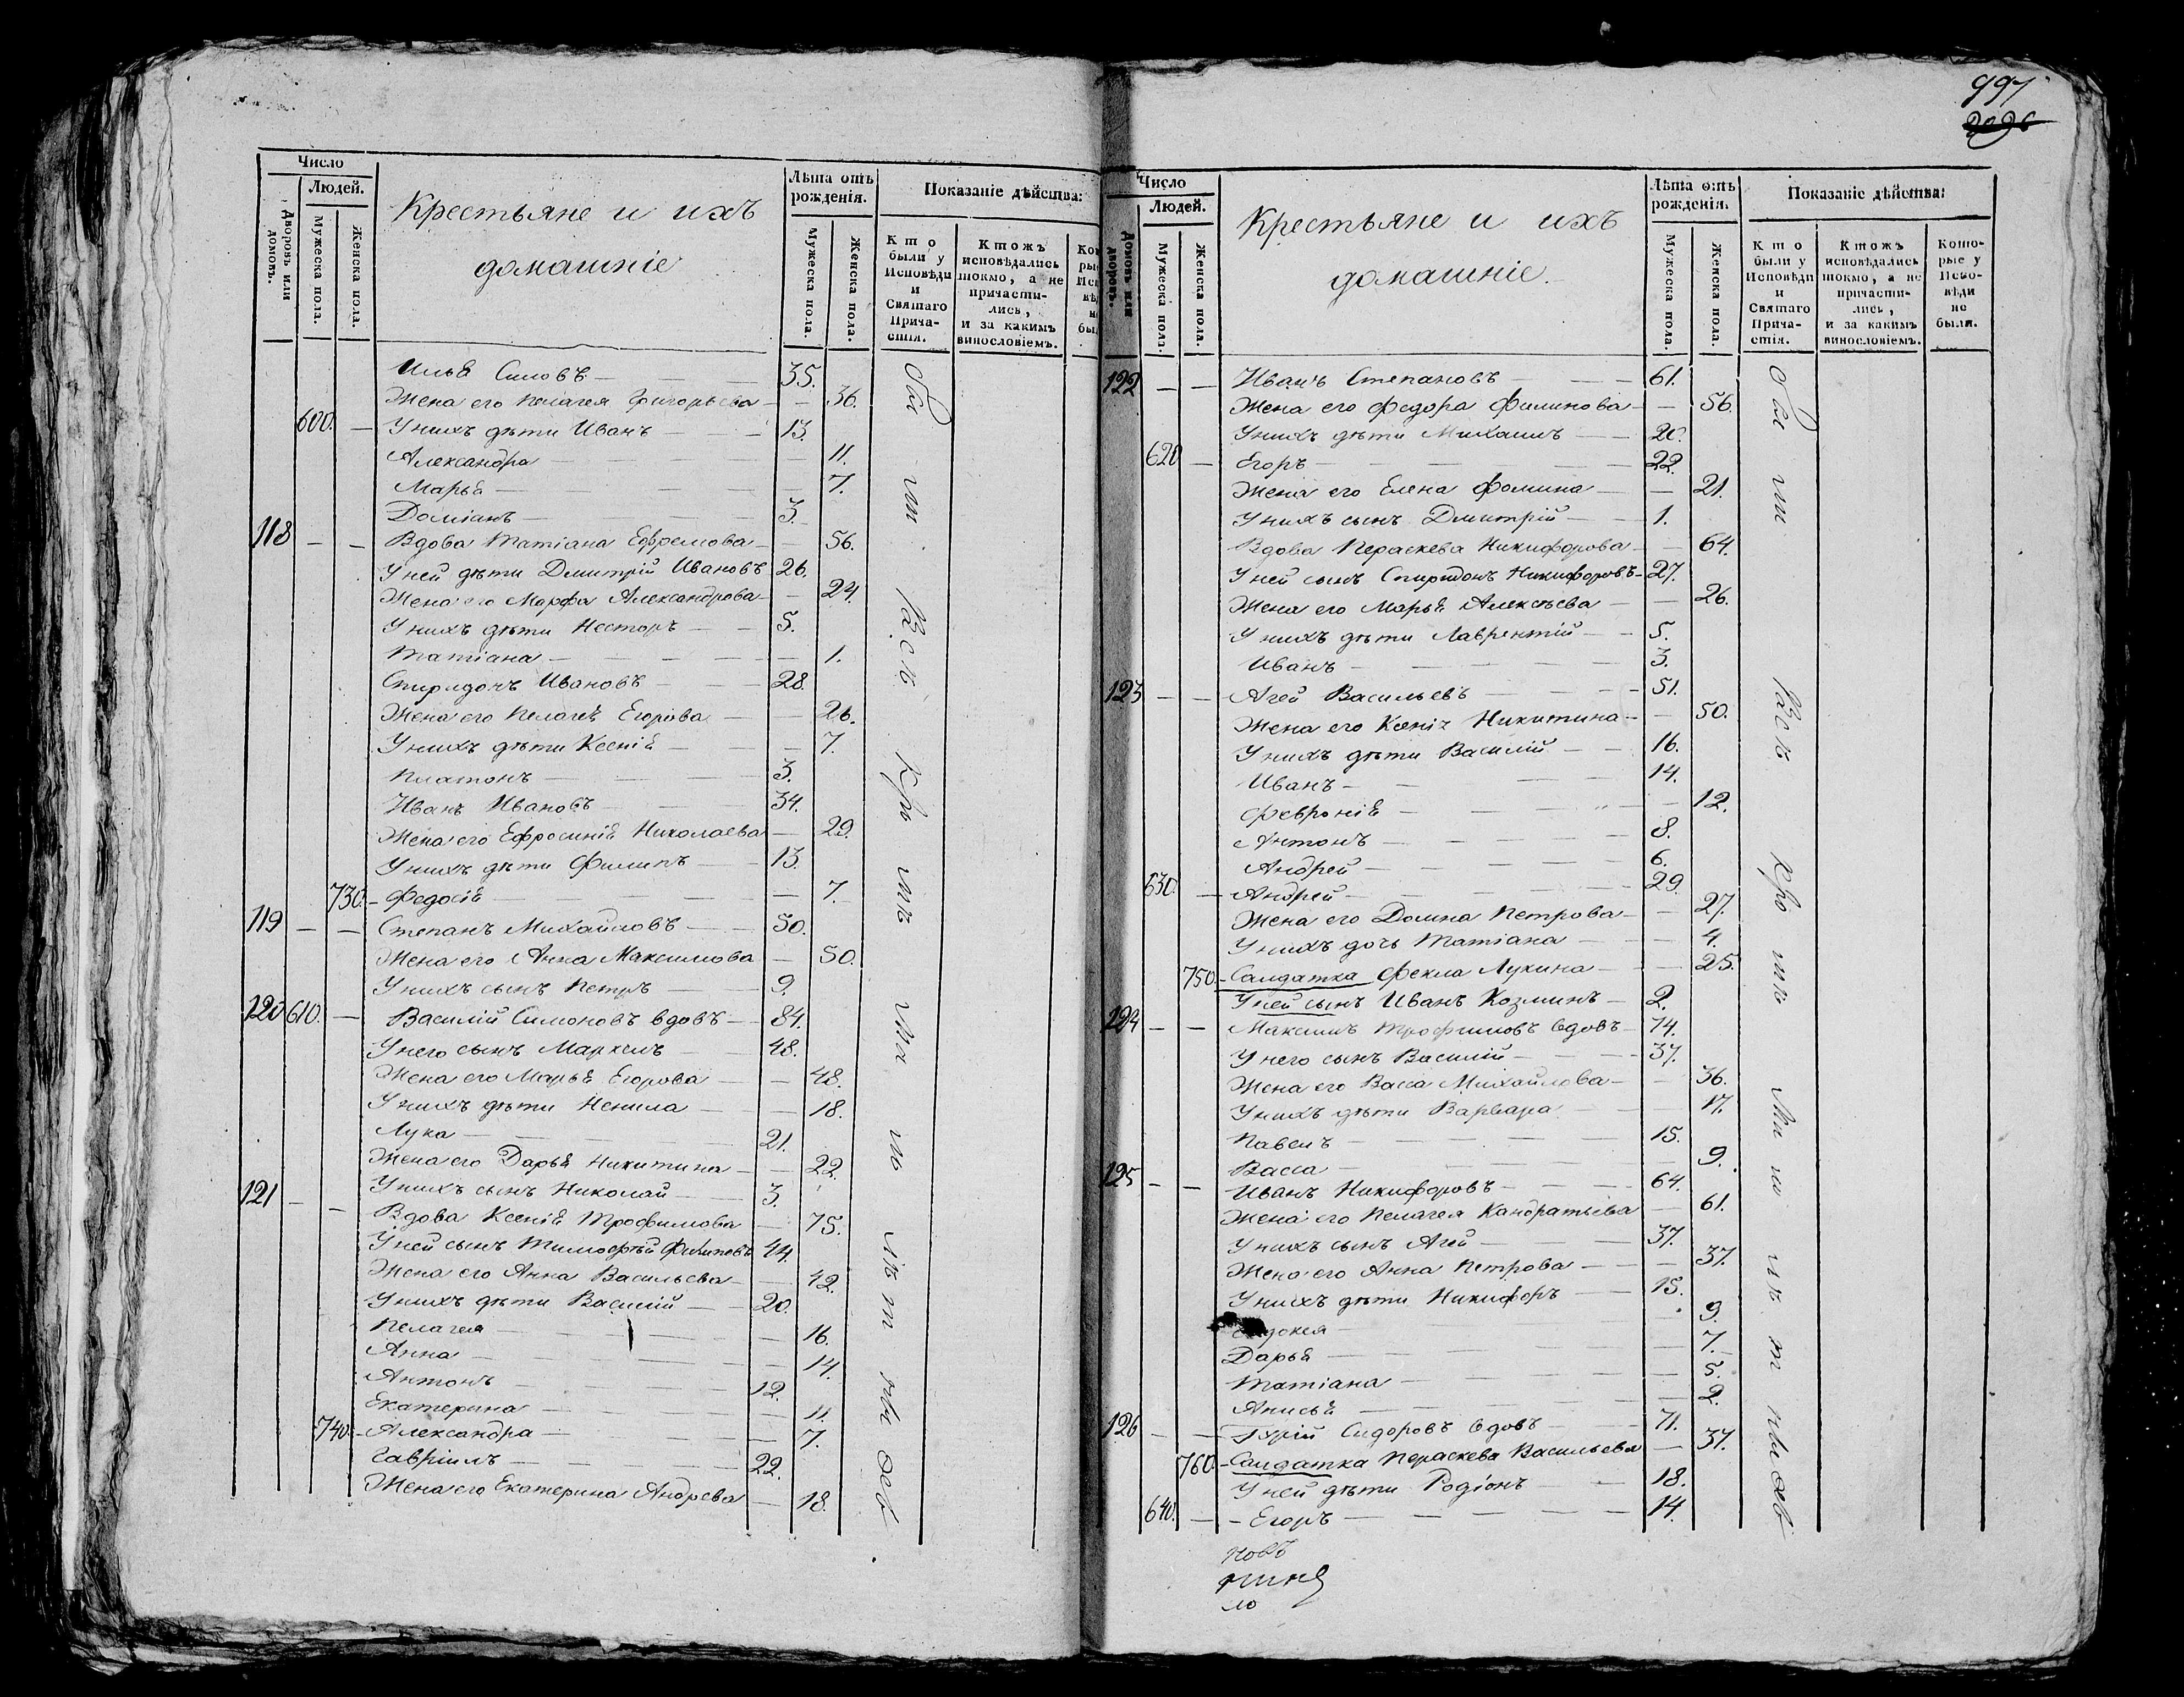 997
2096
Число
Людей.
Дворовъ или домовъ.
Мужеска пола.
Женска пола.
Крестьяне и ихъ
домашніе
Лѣта отъ рожденія.
Мужеска пола.
Женска пола.
Показаніе дѣйства:
Кто были у Исповѣди и Святаго Прича-стія.
Ктожъ исповѣдались токмо, а не причасти-лись, и за какимъ винословіемъ.
Илья Силовъ — 35.
Жена его Пелагея Григорьева — 36.
600. — У нихъ дѣти Иванъ — 13.
Александра — 11.
Марья — 7.
Доміанъ — 3.
118 — — Вдова Татіана Ефремова — 56.
У ней дѣти Дмитрій Ивановъ 26.
Жена его Марфа Александрова — 24.
У нихъ дѣти Несторъ — 5.
Татіана — 1.
Спиридонъ Ивановъ — 28.
Жена его Пелагея Егорова — 26.
У нихъ дѣти Ксенія — 7.
Платонъ — 3.
Иванъ Ивановъ — 34.
Жена его Ефросинія Николаева — 29.
У нихъ дѣти Филипъ — 13.
730. — Федосія — 7.
119 — — Степанъ Михайловъ — 50.
Жена его Анна Максимова — 50.
У нихъ сынъ Петръ — 9.
120 610. — Василій Симоновъ вдовъ — 84.
У него сынъ Маркелъ — 48.
Жена его Марья Егорова — 48.
У нихъ дѣти Ненила — 18.
Лука — 21.
Жена его Дарья Никитина — 22.
У нихъ сынъ Николай — 3.
121 — — Вдова Ксенія Трофимова — 75.
У ней сынъ Тимофѣй Филиповъ 44.
Жена его Анна Васильева — 42.
У нихъ дѣти Василій — 20.
Пелагея — 16.
Анна — 14.
Антонъ — 12.
Екатерина — 11.
740. — Александра — 7.
Гавріилъ — 22.
Жена его Екатерина Андрева — 18.
Число
Людей.
Домовъ или дворовъ.
Мужеска пола.
Женска пола.
Крестьяне и ихъ
домашніе.
Лѣта отъ рожденія.
Мужеска пола.
Женска пола.
Показаніе дѣйства:
Кто были у Исповѣди и Святаго Прича-стія.
Ктожъ исповѣдались токмо, а не причасти-лись, и за какимъ винословіемъ.
Кото-рые у Испо-вѣди не были.
122 — — Иванъ Степановъ — 61.
Жена его Федора Филипова — 56.
У нихъ дѣти Михаилъ — 20.
620 — Егоръ — 22.
Жена его Елена Фомина — 21.
У нихъ сынъ Дмитрій — 1.
Вдова Пераскева Никифорова — 64.
У ней сынъ Спиридонъ Никифоровъ — 27.
Жена его Марья Алексѣева — 26.
У нихъ дѣти Лаврентій — 5.
Иванъ — 3.
123 — — Агей Васильевъ — 51.
Жена его Ксенія Никитина — 50.
У нихъ дѣти Василій — 16.
Иванъ — 14.
Февронія — 12.
Антонъ — 8.
Андрей — 6.
630. — Андрей — 29.
Жена его Домна Петрова — 27.
У нихъ дочь Татіана — 4.
750. — Салдатка Фекла Лукина — 25.
У ней сынъ Иванъ Козминъ — 2.
124 — — Максимъ Трофимовъ вдовъ — 74.
У него сынъ Василій — 37.
Жена его Васса Михайлова — 36.
У нихъ дѣти Варвара — 17.
Павелъ — 15.
Васса — 9.
125 — — Иванъ Никифоровъ — 64.
Жена его Пелагея Кандратьева — 61.
У нихъ сынъ Агей — 37.
Жена его Анна Петрова — 37.
У нихъ дѣти Никифоръ — 15.
— 9.
Дарья — 7.
Татіана — 5.
Анисья — 2.
126 — — Сидоровъ вдовъ — 71.
760. — Салдатка Пераскева Васильева — 37.
У ней дѣти Родіонъ — 18.
640. — Егоръ — 14.
новъ